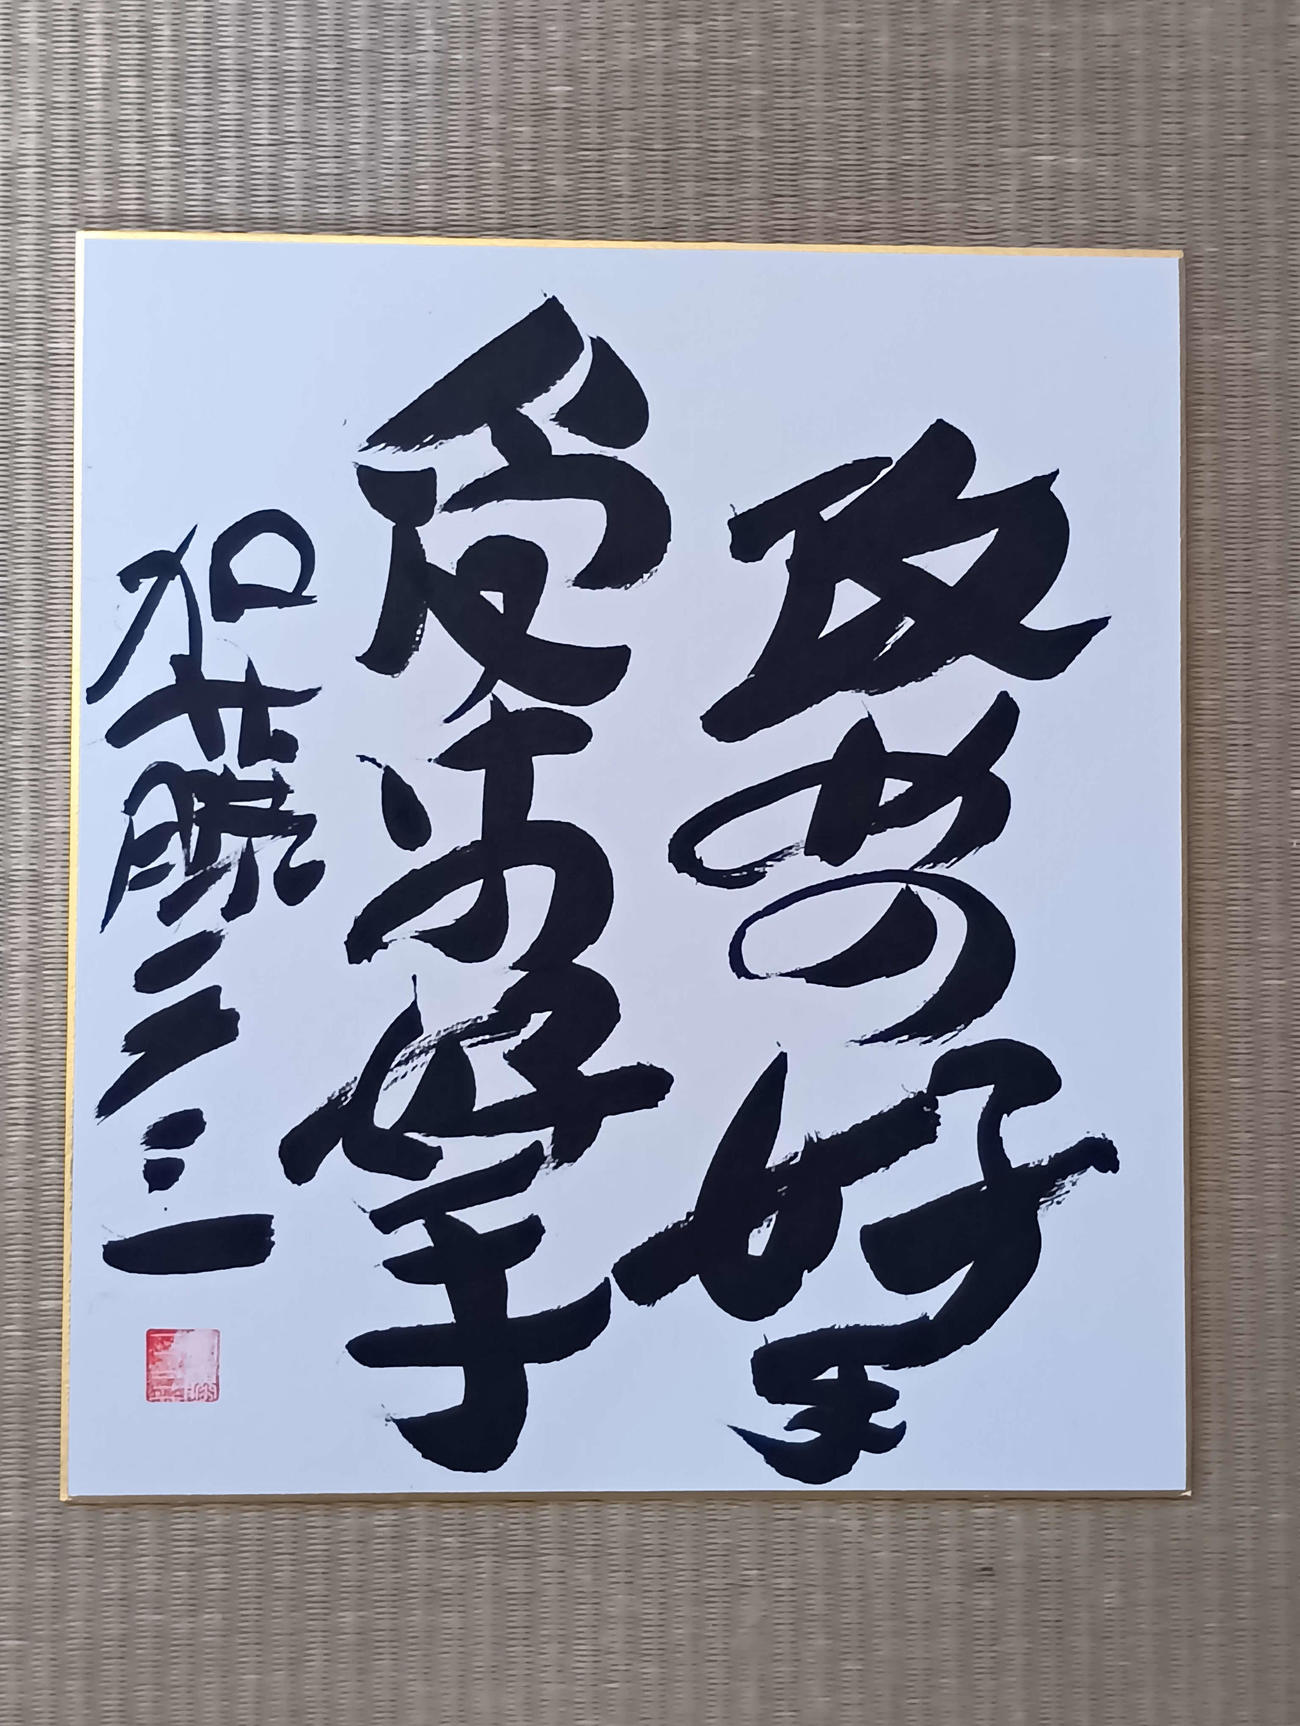 攻めの好手
受けの好手
加藤一二三